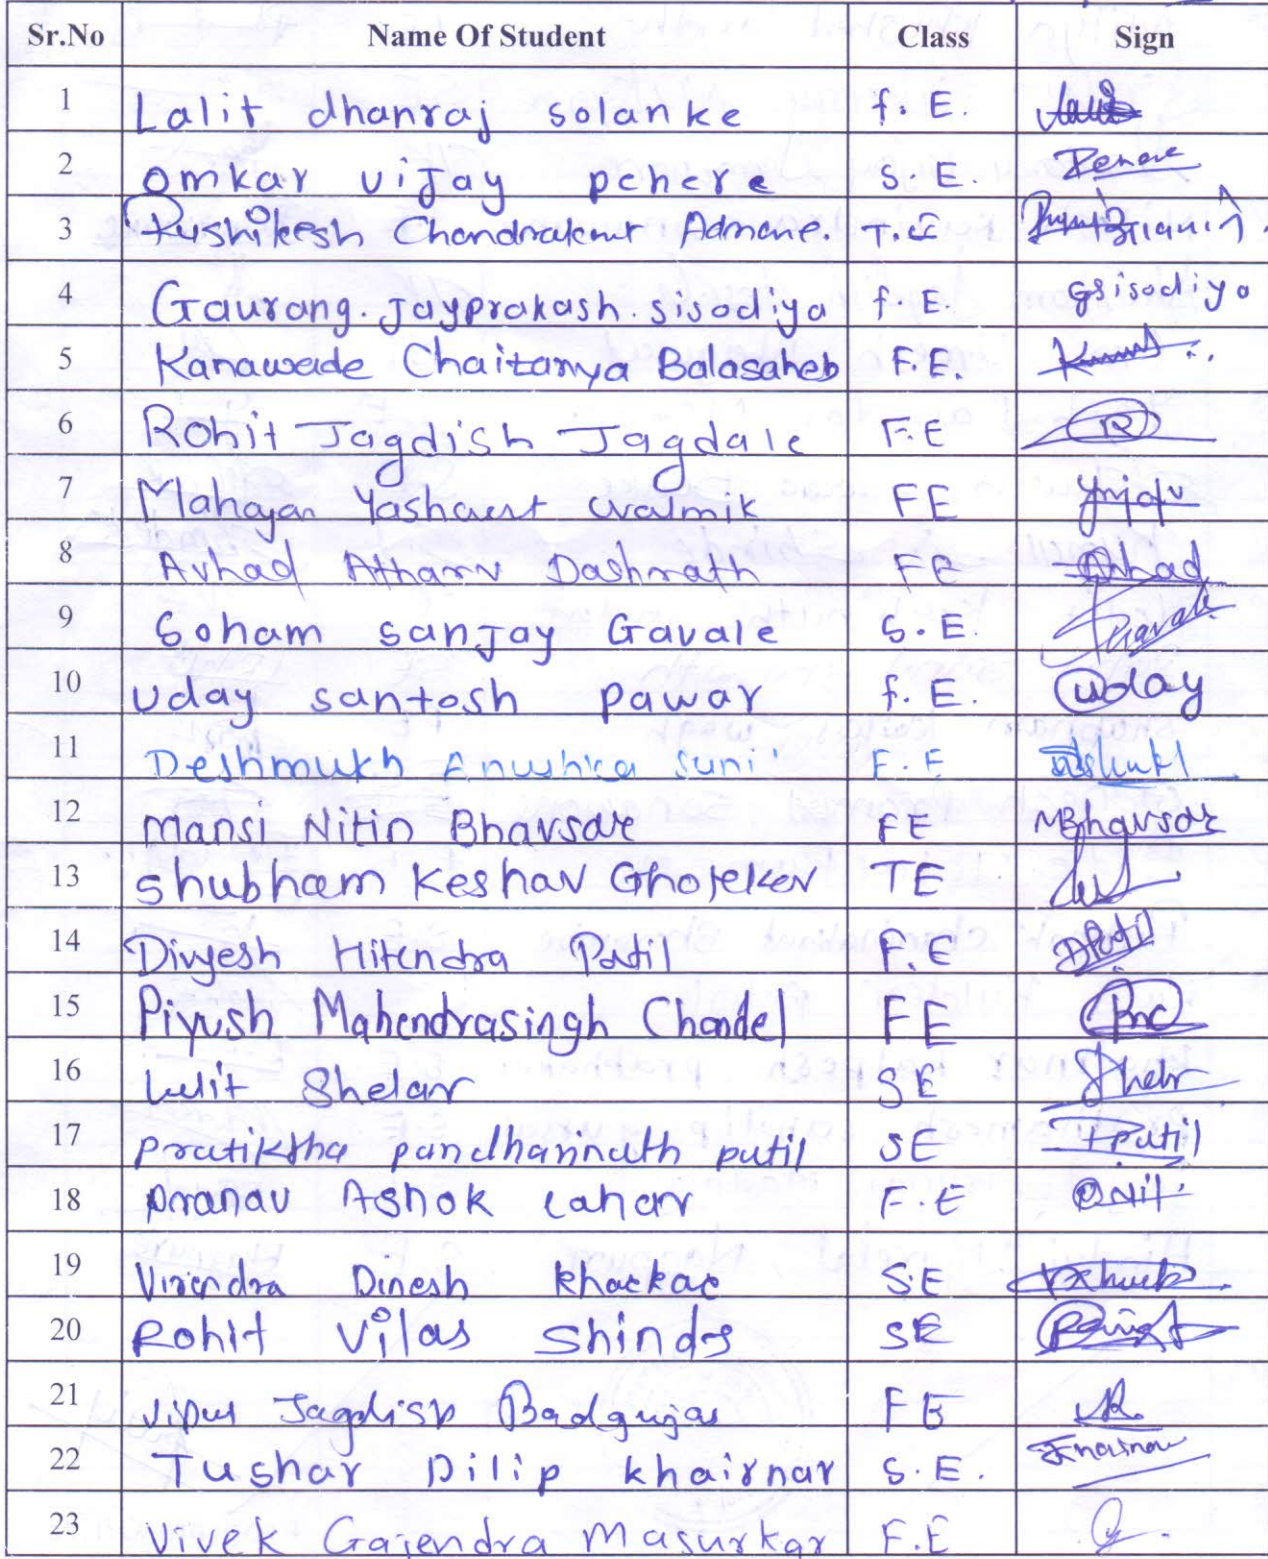 Sr.No Name Of Student Class Sign
1 Lalit dhanraj solanke f. E.
2 omkar vijay pchere S. E.
3 Rushikesh Chandrakant Admane. T.E
4 Gaurang. Jayprakash. sisodiya f E. gsisodiya
5 Kanawade Chaitanya Balasaheb F.E.
6 Rohit Jagdish Jagdale F.E R
7 Mahajan Yashwant walmik FE
8 Avhad Atharv Dashrath FE Avhad
9 Soham sanjay Gavale S.E. Gavale
10 uday santosh pawar f. E. uday
11 Deshmukh Anushka Sunil F.E
12 Mansi Nitin Bhavsar FE MBhavsar
13 shubham Keshav Ghotekar TE
14 Divyesh Hitendra Patil F.E DPatil
15 Piyush Mahendrasingh Chandel FE Pmc
16 Lalit Shelar SE
17 pratiksha pandharinath patil SE Ppatil
18 pranav Ashok Lahar F.E
19 Virendra Dinesh khackac S.E
20 Rohit Vilas Shinde SE
21 Vipul Jagdish Badgujar FE
22 Tushar Dilip khairnar S.E.
23 Vivek Gajendra Masurkar F.E